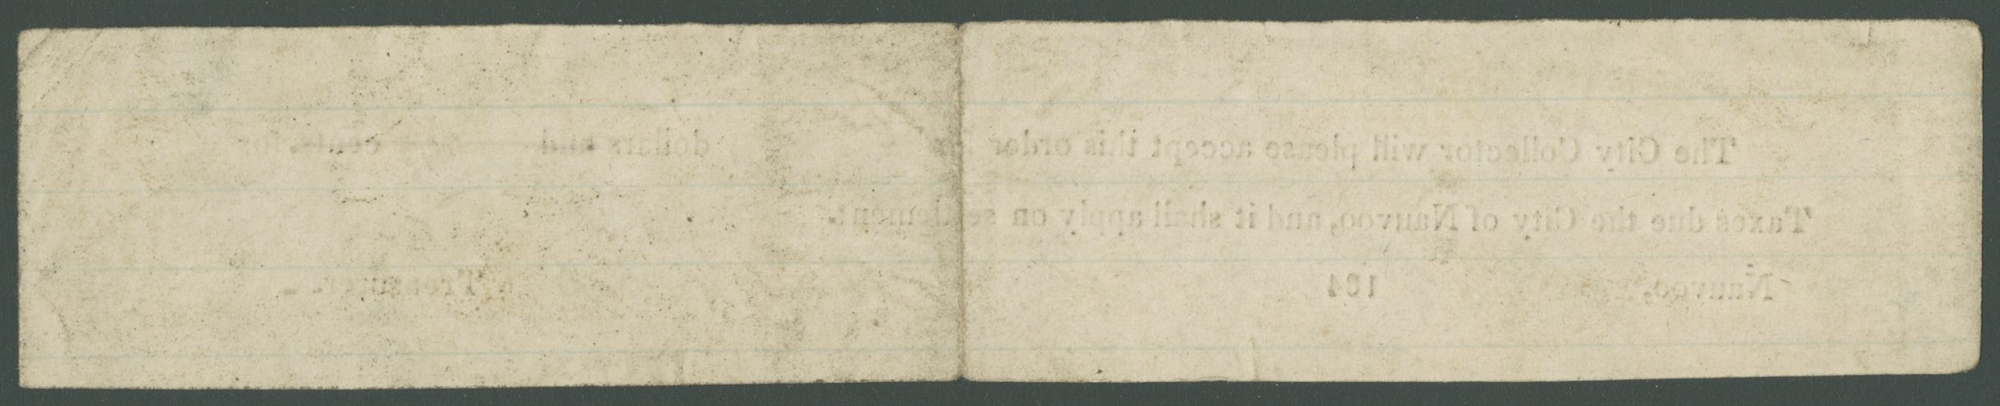 The City Collector will please accept this order for dollars and cents, for
Taxes due the City of Nauvoo, and it shall apply on settlement.
Nauvoo, 184 Treasurer.